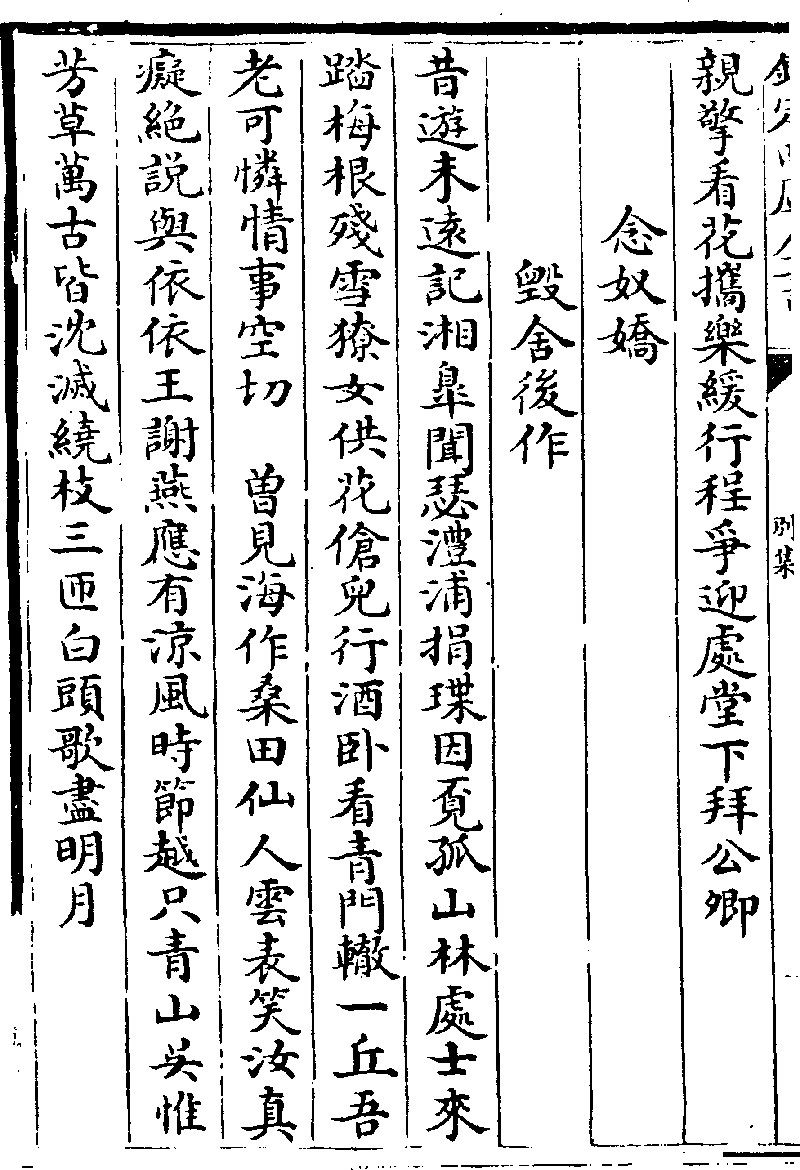 親擎看花攜樂緩行程爭迎處堂下拜公卿
念奴嬌
毀舍後作
昔遊未遠記湘臯聞瑟澧浦捐㻡因覔孤山林處士來
踏梅根殘雪獠女供花傖兒行酒卧看青門轍一丘吾
老可憐情事空切 曾見海作桑田仙人雲表笑汝真
癡絶説與依依王謝燕應有涼風時節越只青山吳惟
芳草萬古皆沈滅繞枝三匝白頭歌盡明月
別集